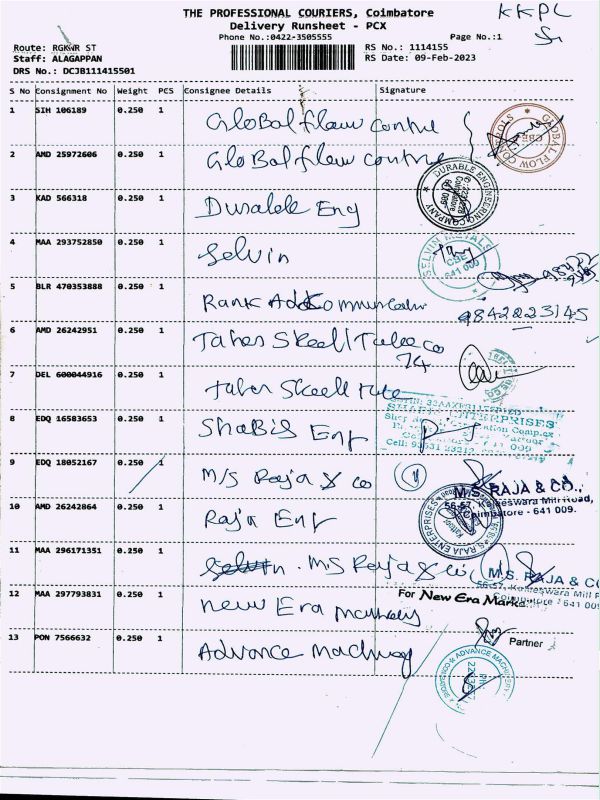 THE PROFESSIONAL COURIERS, Coimbatore
KKPL
Delivery Runsheet - PCX
Phone No.:0422-3505555
Page No.:1
Route: RGKWR ST
RS No.: 1114155
Staff: ALAGAPPAN
RS Date: 09-Feb-2023
DRS No.: DCJB111415501
S No Consignment No Weight PCS Consignee Details Signature
1 SIH 106189 0.250 1 Global flow control
GLOBAL FLOW CONTROLS CBE
2 AMD 25972606 0.250 1 Global flow control
DURABLE ENGINEERING COMPANY
3 KAD 566318 0.250 1 Durable Eng
4 MAA 293752850 0.250 1 Selvin
SELVIN METALS CBE 641 000
5 BLR 470353888 0.250 1 Rank Add Communication
9842223145
6 AMD 26242951 0.250 1 Taher Steell Tube Co
74
7 DEL 600044916 0.250 1 Taher Steell Tube
8 EDQ 16583653 0.250 1 Shabis Enp
SHABIS ENTERPRISES
9 EDQ 18052167 0.250 1 M/s Raja & co
M/S. RAJA & CO.,
56-57, Kameswara Mill Road,
Coimbatore - 641 009.
10 AMD 26242864 0.250 1 Raja Enp
RAJA ENTERPRISES
11 MAA 296171351 0.250 1 Selvin . M/S Raja & co
M/S. RAJA & C
56-57, Kameswara Mill R
Coimbatore - 641 009
12 MAA 297793831 0.250 1 New Era
For New Era Marks
Partner
13 PON 7566632 0.250 1 Advance Machinery
ADVANCE MACHINERY